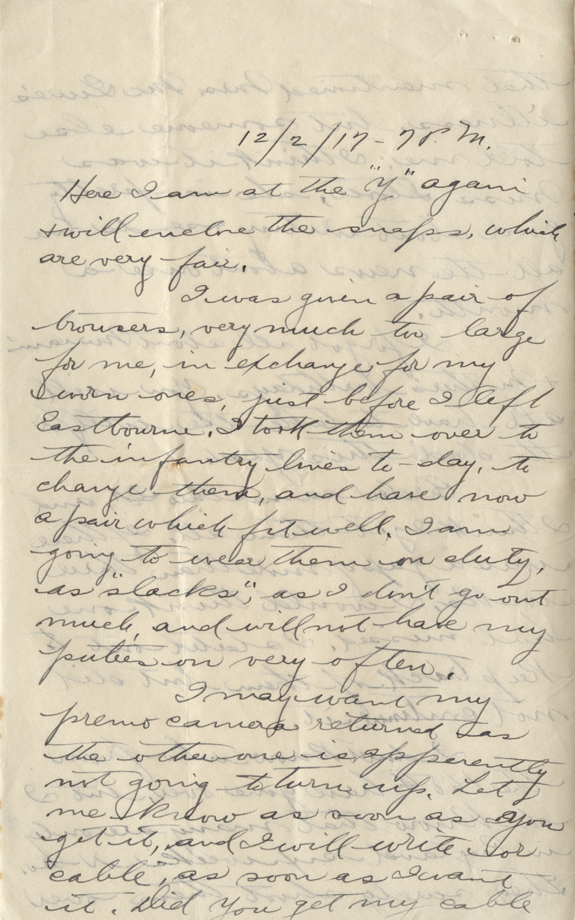 12/2/17 - 7 P.M.
Here I am at the "Y" again
& will enclose the snaps, which
are very fair.
I was given a pair of
trousers, very much too large
for me, in exchange for my
worn ones, just before I left
Eastbourne. I took them over to
the infantry lines to-day, to
change them, and have now
a pair which fit well. I am
going to wear them on duty,
as "slacks", as I don't go out
much, and will not have my
putties on very often.
I may want my
premo camera returned, as
the other one is apparently
not going to turn up. Let
me know as soon as you
get it, and I will write or
cable, as soon as I want
it. Did you get my cable